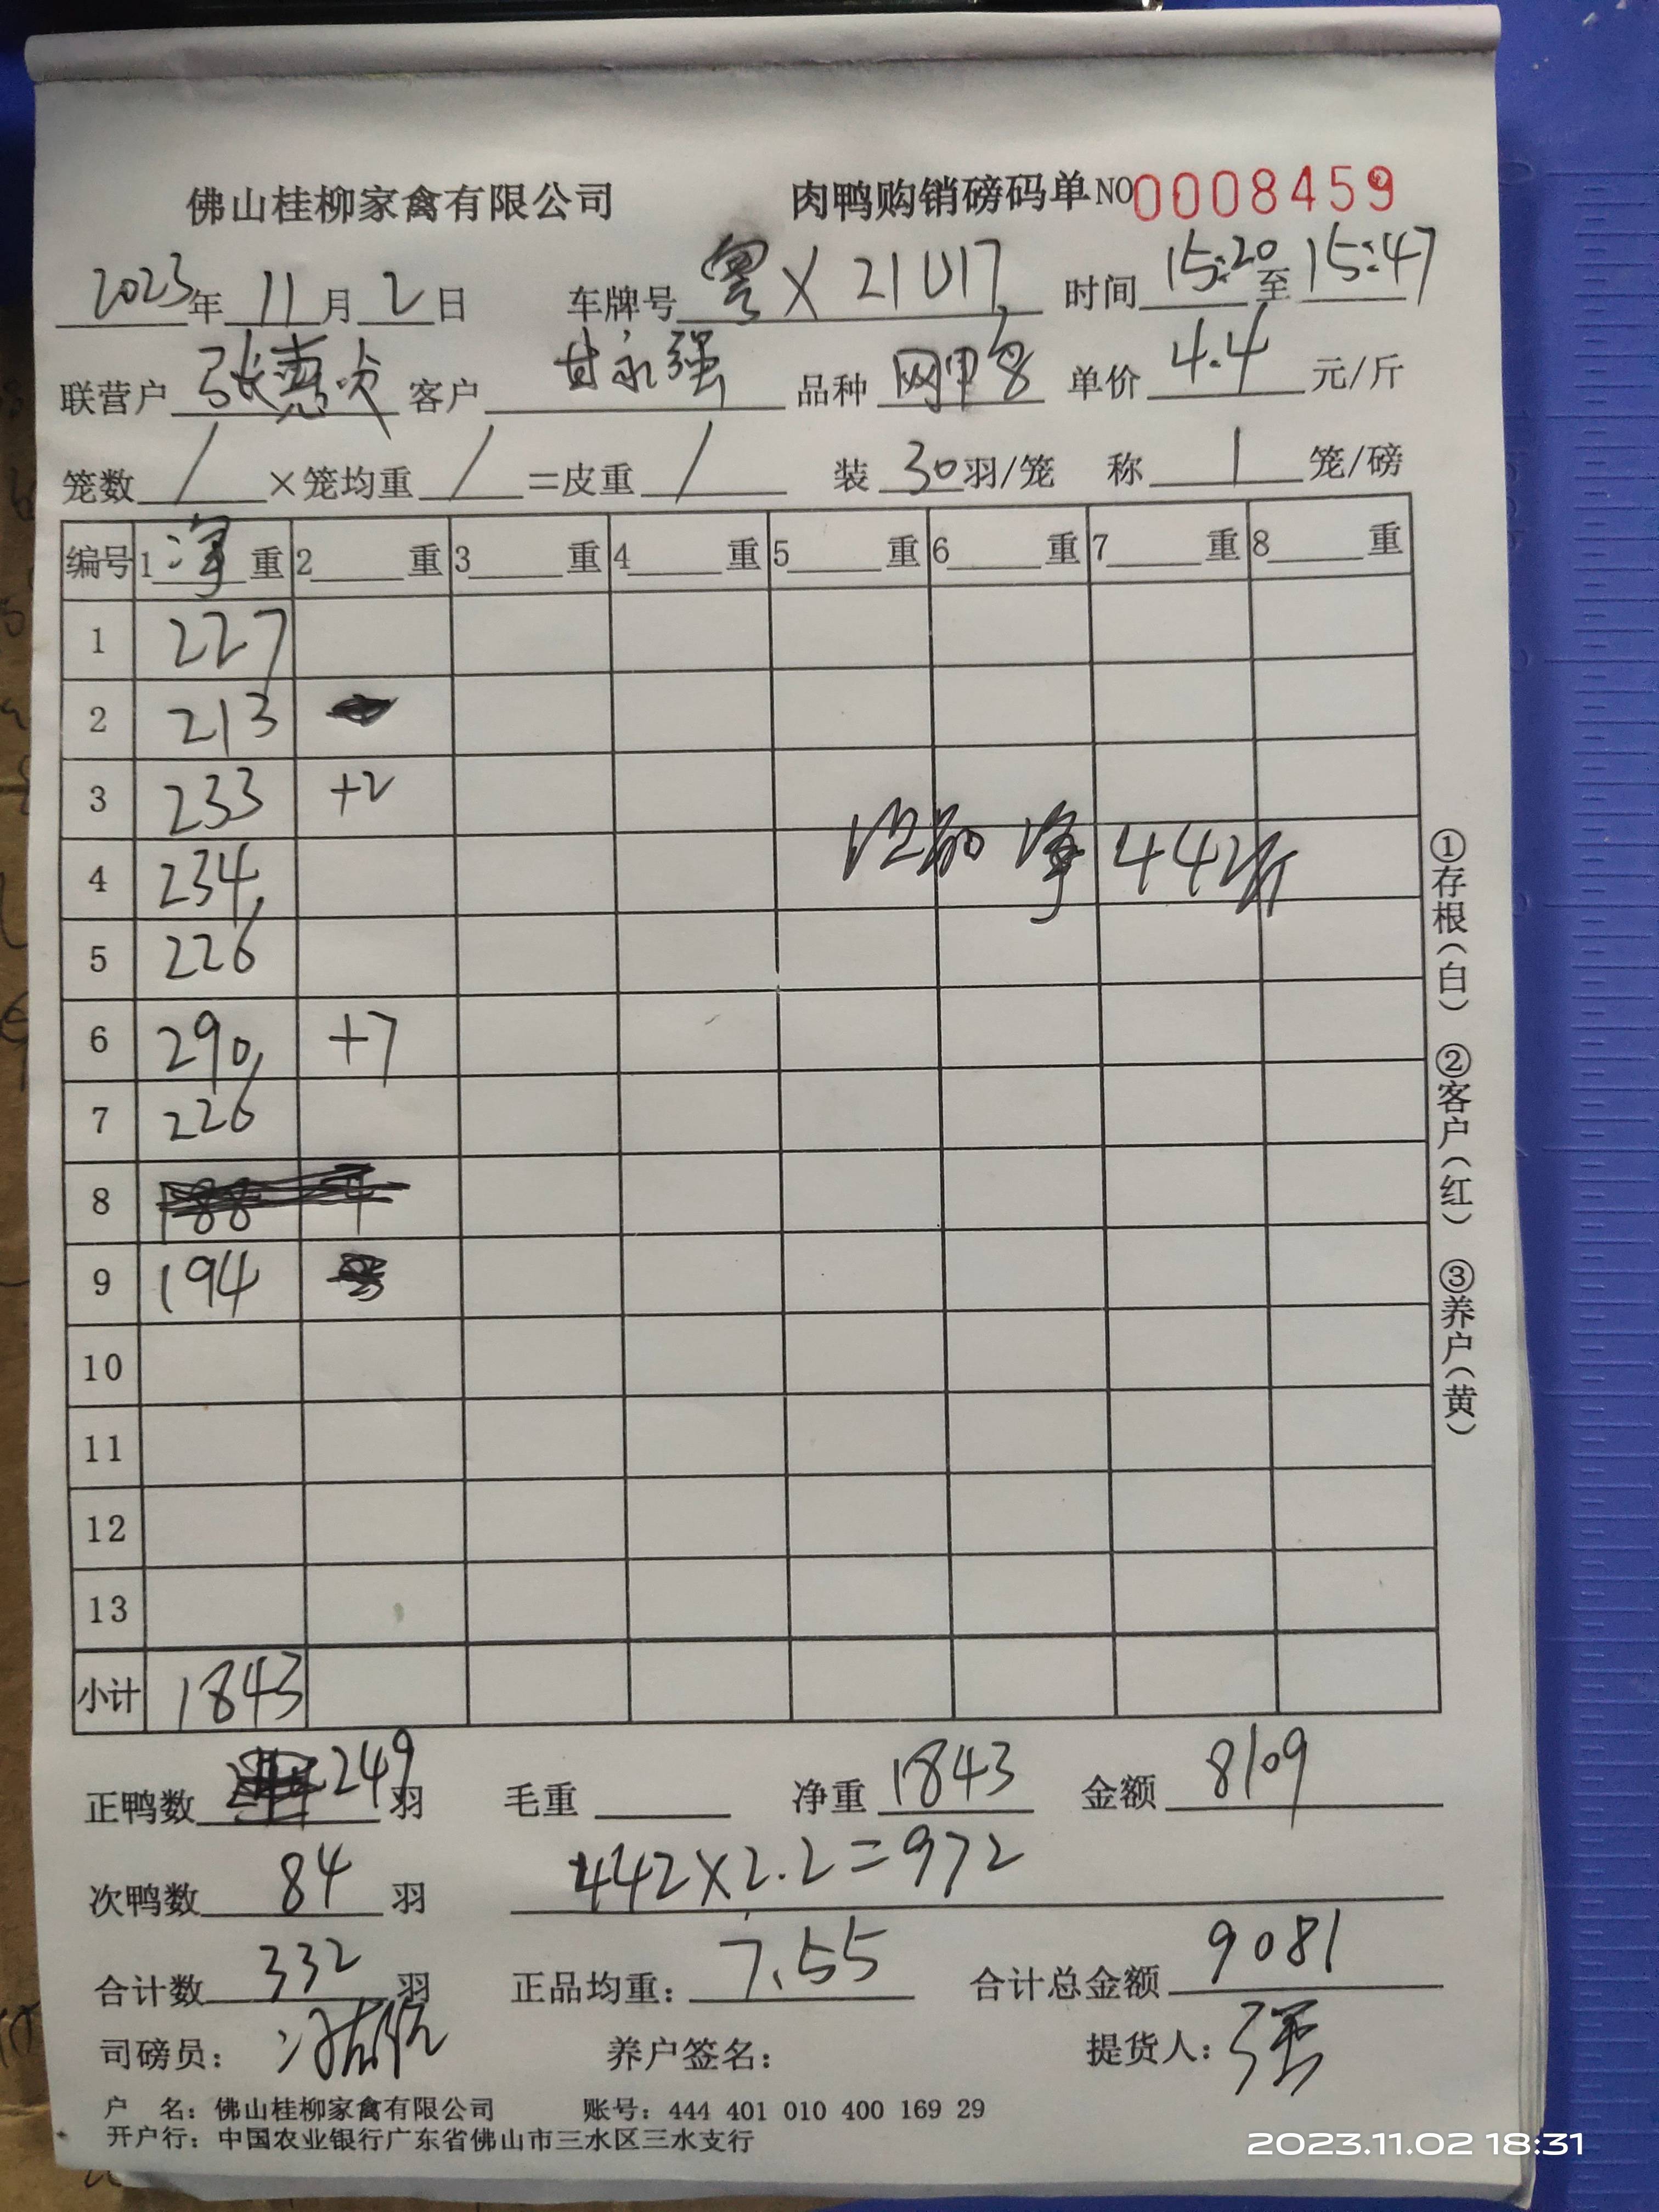 佛山桂柳家禽有限公司 肉鸭购销磅码单 NO 0008459
2023年 11月 2日 车牌号 粤X21U17 时间 15:20 至 15:47
联营户 张惠 客户 甘永强 品种 网甲 单价 4.4 元/斤
笼数 / ×笼均重 / =皮重 / 装 30 羽/笼 称 1 笼/磅
编号 1 净 重 2 重 3 重 4 重 5 重 6 重 7 重 8 重
1 227
2 213
3 233 +2
4 234
5 226
6 290 +7
7 226
8
9 194
10
11
12
13
净 442斤
小计 1843
正鸭数 249 羽 毛重 净重 1843 金额 8109
次鸭数 84 羽 442×2.2=972
合计数 332 羽 正品均重: 7.55 合计总金额 9081
司磅员: 养户签名: 提货人: 强
户 名: 佛山桂柳家禽有限公司 账号: 444 401 010 400 169 29
开户行: 中国农业银行广东省佛山市三水区三水支行
①存根(白) ②客户(红) ③养户(黄)
2023.11.02 18:31